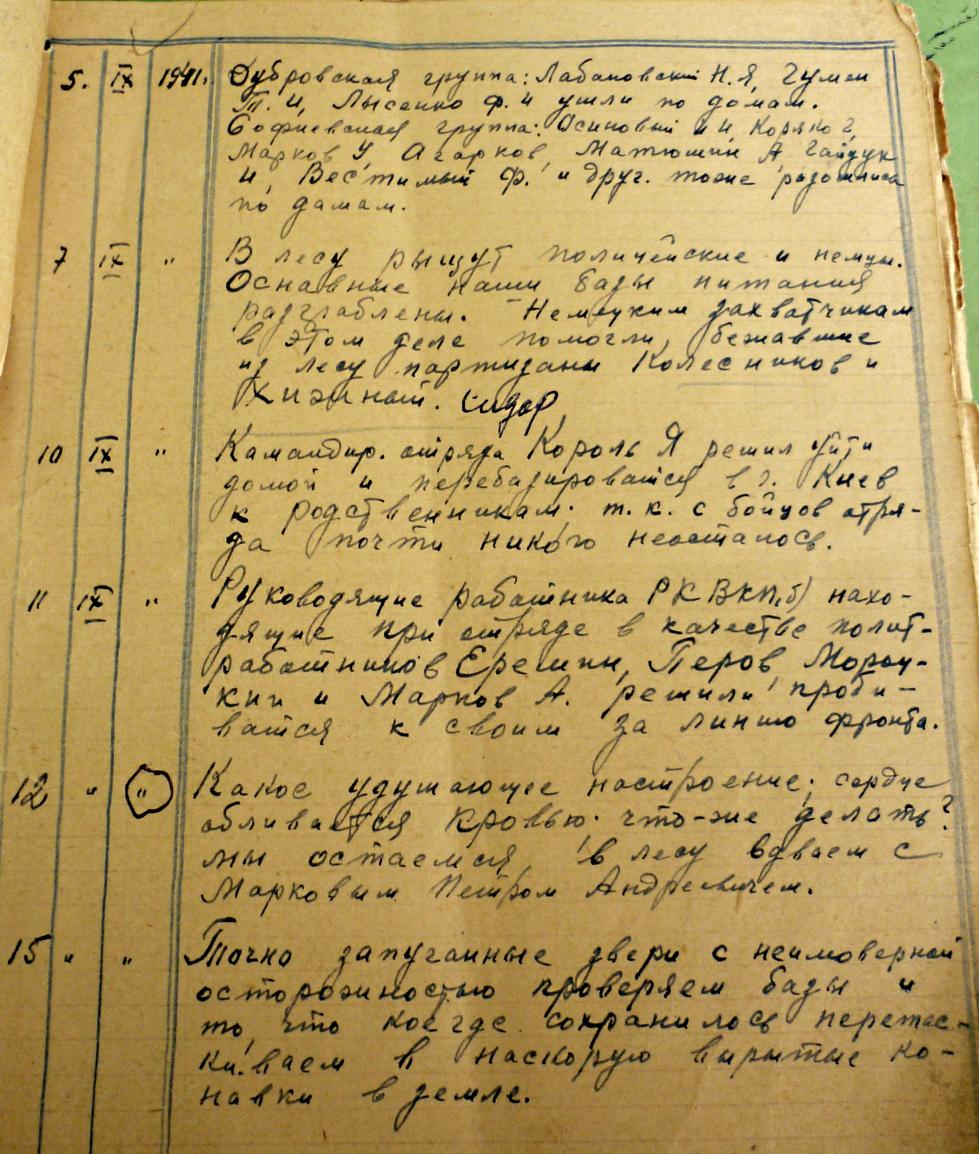 5. IX 1941г. Дубровская группа: Лабановский Н.Я, Гумен
Т. И, Лысенко Ф. И ушли по домам.
Софиевская группа: Осиновый И И, Коряко Г,
Марков У, Агарков, Матюшин А, Гайдук
И, Вестимый Ф. и друг. тоже разошлися
по дамам.
7 IX " В лесу рыщут поличейские и немцы.
Основные наши базы питания
разграблены. Немецким захватчикам
в этом деле помогли, бежавшие
из лесу партизаны Колесников и
Хижний. Сидор
10 IX " Камандир. отряда Король Я решил уйти
домой и перебазироватся в г. Киев
к родственникам. т. к. с бойцов отря-
да почти никого неосталось.
11 IX " Руководящие работника РК ВКП,б) нахо-
дящие при отряде в качестве полит-
работников Ерешин, Перов, Мороу-
кин и Марков А. решили проби-
ватся к своим за линию фронта.
12 " " Какое удушающее настроение; сердце
обливается кровью. что-же делать?
мы остаемся, в лесу вдваем с
Марковым Петром Андреевичем.
15 " " Точно запуганные звери с неимоверной
осторожностью проверяем базы и
то, что кое где сохранилось перетас-
киваем в наскорую вырытые ка-
навки в земле.